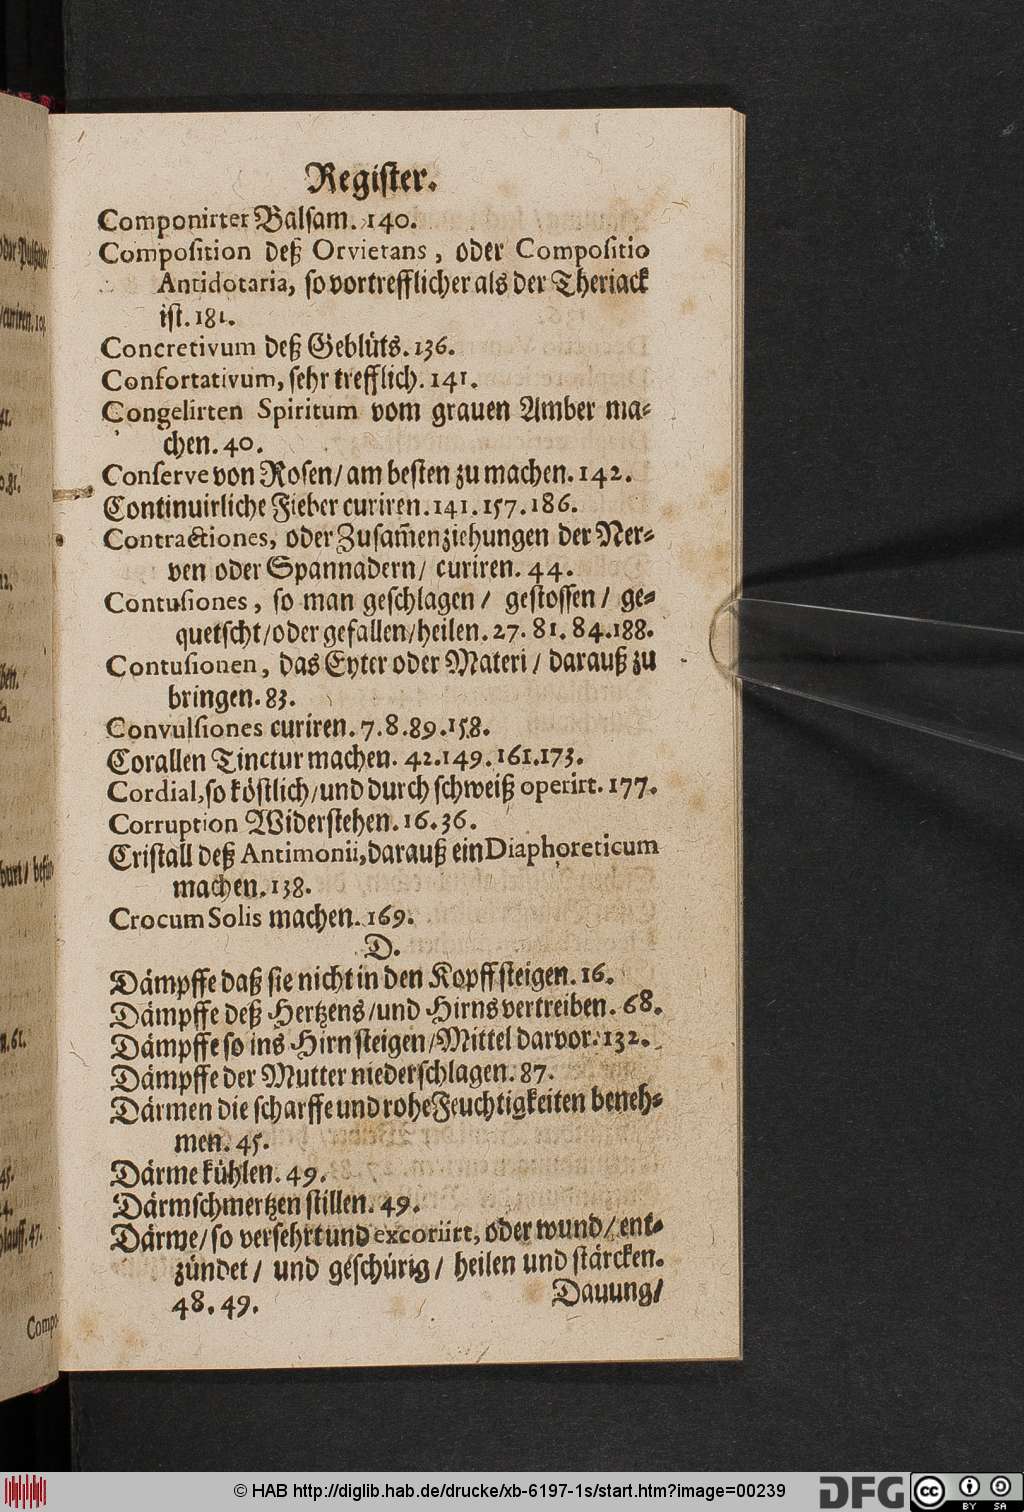 Register.
Componirter Balſam. 140.
Composition deß Orvietans, oder Compositio
Antidotaria, ſo vortrefflicher als der Theriack
iſt. 181.
Concretivum deß Geblüts. 136.
Confortativum, ſehr trefflich. 141.
Congelirten Spiritum vom grauen Amber ma⸗
chen. 40.
Conſerve von Roſen/ am beſten zu machen. 142.
Continuirliche Fieber curiren. 141. 157. 186.
Contractiones, oder Zuſam̃enziehungen der Ner⸗
ven oder Spannadern/ curiren. 44.
Contuſiones, ſo man geſchlagen/ geſtoſſen/ ge⸗
quetſcht/ oder gefallen/ heilen. 27. 81. 84. 188.
Contuſionen, das Eyter oder Materi/ darauß zu
bringen. 83.
Convulſiones curiren. 7. 8. 89. 158.
Corallen Tinctur machen. 42. 149. 161. 173.
Cordial, ſo köſtlich/ und durch ſchweiß operirt. 177.
Corruption Widerſtehen. 16. 36.
Criſtall deß Antimonii, darauß ein Diaphoreticum
machen. 138.
Crocum Solis machen. 169.
D.
Dämpffe daß ſie nicht in den Kopff ſteigen. 16.
Dämpffe deß Hertzens/ und Hirns vertreiben. 68.
Dämpffe ſo ins Hirn ſteigen/ Mittel darvor. 132.
Dämpffe der Mutter niederſchlagen. 87.
Därmen die ſcharffe und rohe Feuchtigkeiten beneh⸗
men. 45.
Därme kühlen. 49.
Därmſchmertzen ſtillen. 49.
Därme/ ſo verſehrt und excoriirt, oder wund/ ent⸗
zündet/ und geſchürig/ heilen und ſtärcken.
48. 49.
Dauung/
Comp
© HAB http://diglib.hab.de/drucke/xb-6197-1s/start.htm?image=00239
DFG
cc
BY SA